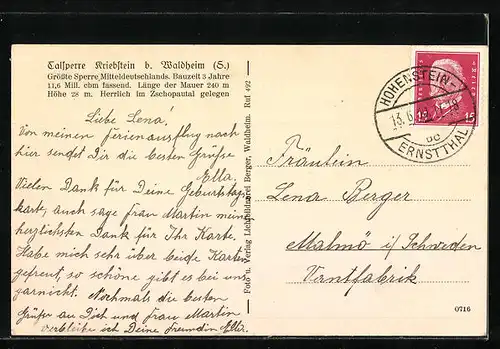 Talsperre Kriebstein b. Waldheim (S.)
Größte Sperre Mitteldeutschlands. Bauzeit 3 Jahre
11,6 Mill. cbm fassend. Länge der Mauer 240 m
Höhe 28 m. Herrlich im Zschopautal gelegen
Liebe Lena!
Von meinen Ferienausflug nach
hier sendet Dir die besten Grüße
Ella.
Vielen Dank für Deine Geburtstags
kart, auch sage Frau Martin meine
herzlichsten Dank für Ihr Karte.
Habe mich sehr über beide Karten
gefreut, so schöne gibt es bei uns
garnicht. Nochmals die besten
Grüße an Dich und Frau Martin
verbleibe ich Deine Freundin Ella.
Foto u. Verlag Lichtbildnerei Berger, Waldheim. Ruf 492
HOHENSTEIN-
ERNSTTHAL
15
Fräulein
Lena Berger
Malmö i/Schweden
Vantfabrik
0716